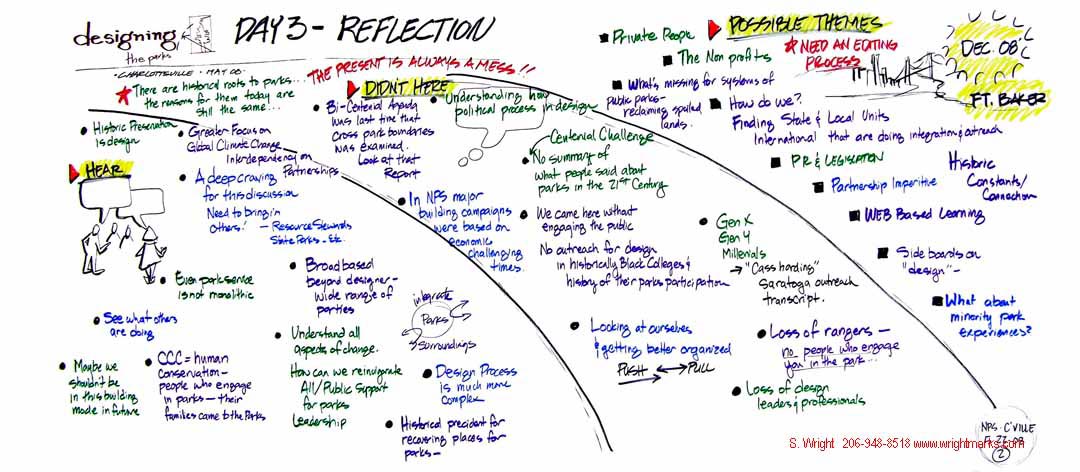 designing
the parks
CHARLOTTEVILLE · MAY 08
DAY 3 - REFLECTION
THE PRESENT IS ALWAYS A MESS!!
There are historical roots to parks...
the reasons for them today are
still the same...
HEAR
Historic Preservation
is design
Greater Focus on
Global Climate Change
Interdependency on
Partnerships
A deep craving
for this discussion
Need to bring in
others! - Resource Stewards
State Parks - Etc.
Even park service
is not monolithic
See what others
are doing
Maybe we
shouldn't be
in this building
mode in future
CCC = human
conservation -
people who engage
in parks - their
families came to the Parks
Broad based
beyond designer -
wide range of
parties
Understand all
aspects of change.
How can we reinvigorate
All/Public Support
for parks
Leadership
DIDN'T HERE
Bi-Centenial
was last time that
cross park boundaries
was examined.
Look at that
Report
Understanding how
political process in design
In NPS major
building campaigns
were based on
economic
challenging
times.
integrate
Parks
surroundings
Design Process
is much more
complex
Historical precident for
recovering places for
parks -
Centenial Challenge
No summary of
what people said about
parks in the 21st Century
We came here without
engaging the public
No outreach for design
in historically Black Colleges &
history of their parks participation
Looking at ourselves
& getting better organized
PUSH PULL
Gen X
Gen Y
Millenials
"Cass harding"
Saratoga outreach
transcript.
Loss of rangers -
no people who engage
you in the park...
Loss of design
leaders & professionals
POSSIBLE THEMES
NEED AN EDITING
PROCESS
Private People
The Non profits
What's missing for systems of
public parks -
reclaiming spoiled
lands.
How do we?
Finding State & Local Units
International that are doing integration & outreach
PR & LEGISLATION
Partnership Imperitive
Historic
Constants/
Connection
WEB Based Learning
Side boards on
"design" -
What about
minority park
experiences?
DEC. 08'
FT. BAKER
NPS · C'VILLE
2
S. Wright 206-948-8518 www.wrightmarks.com